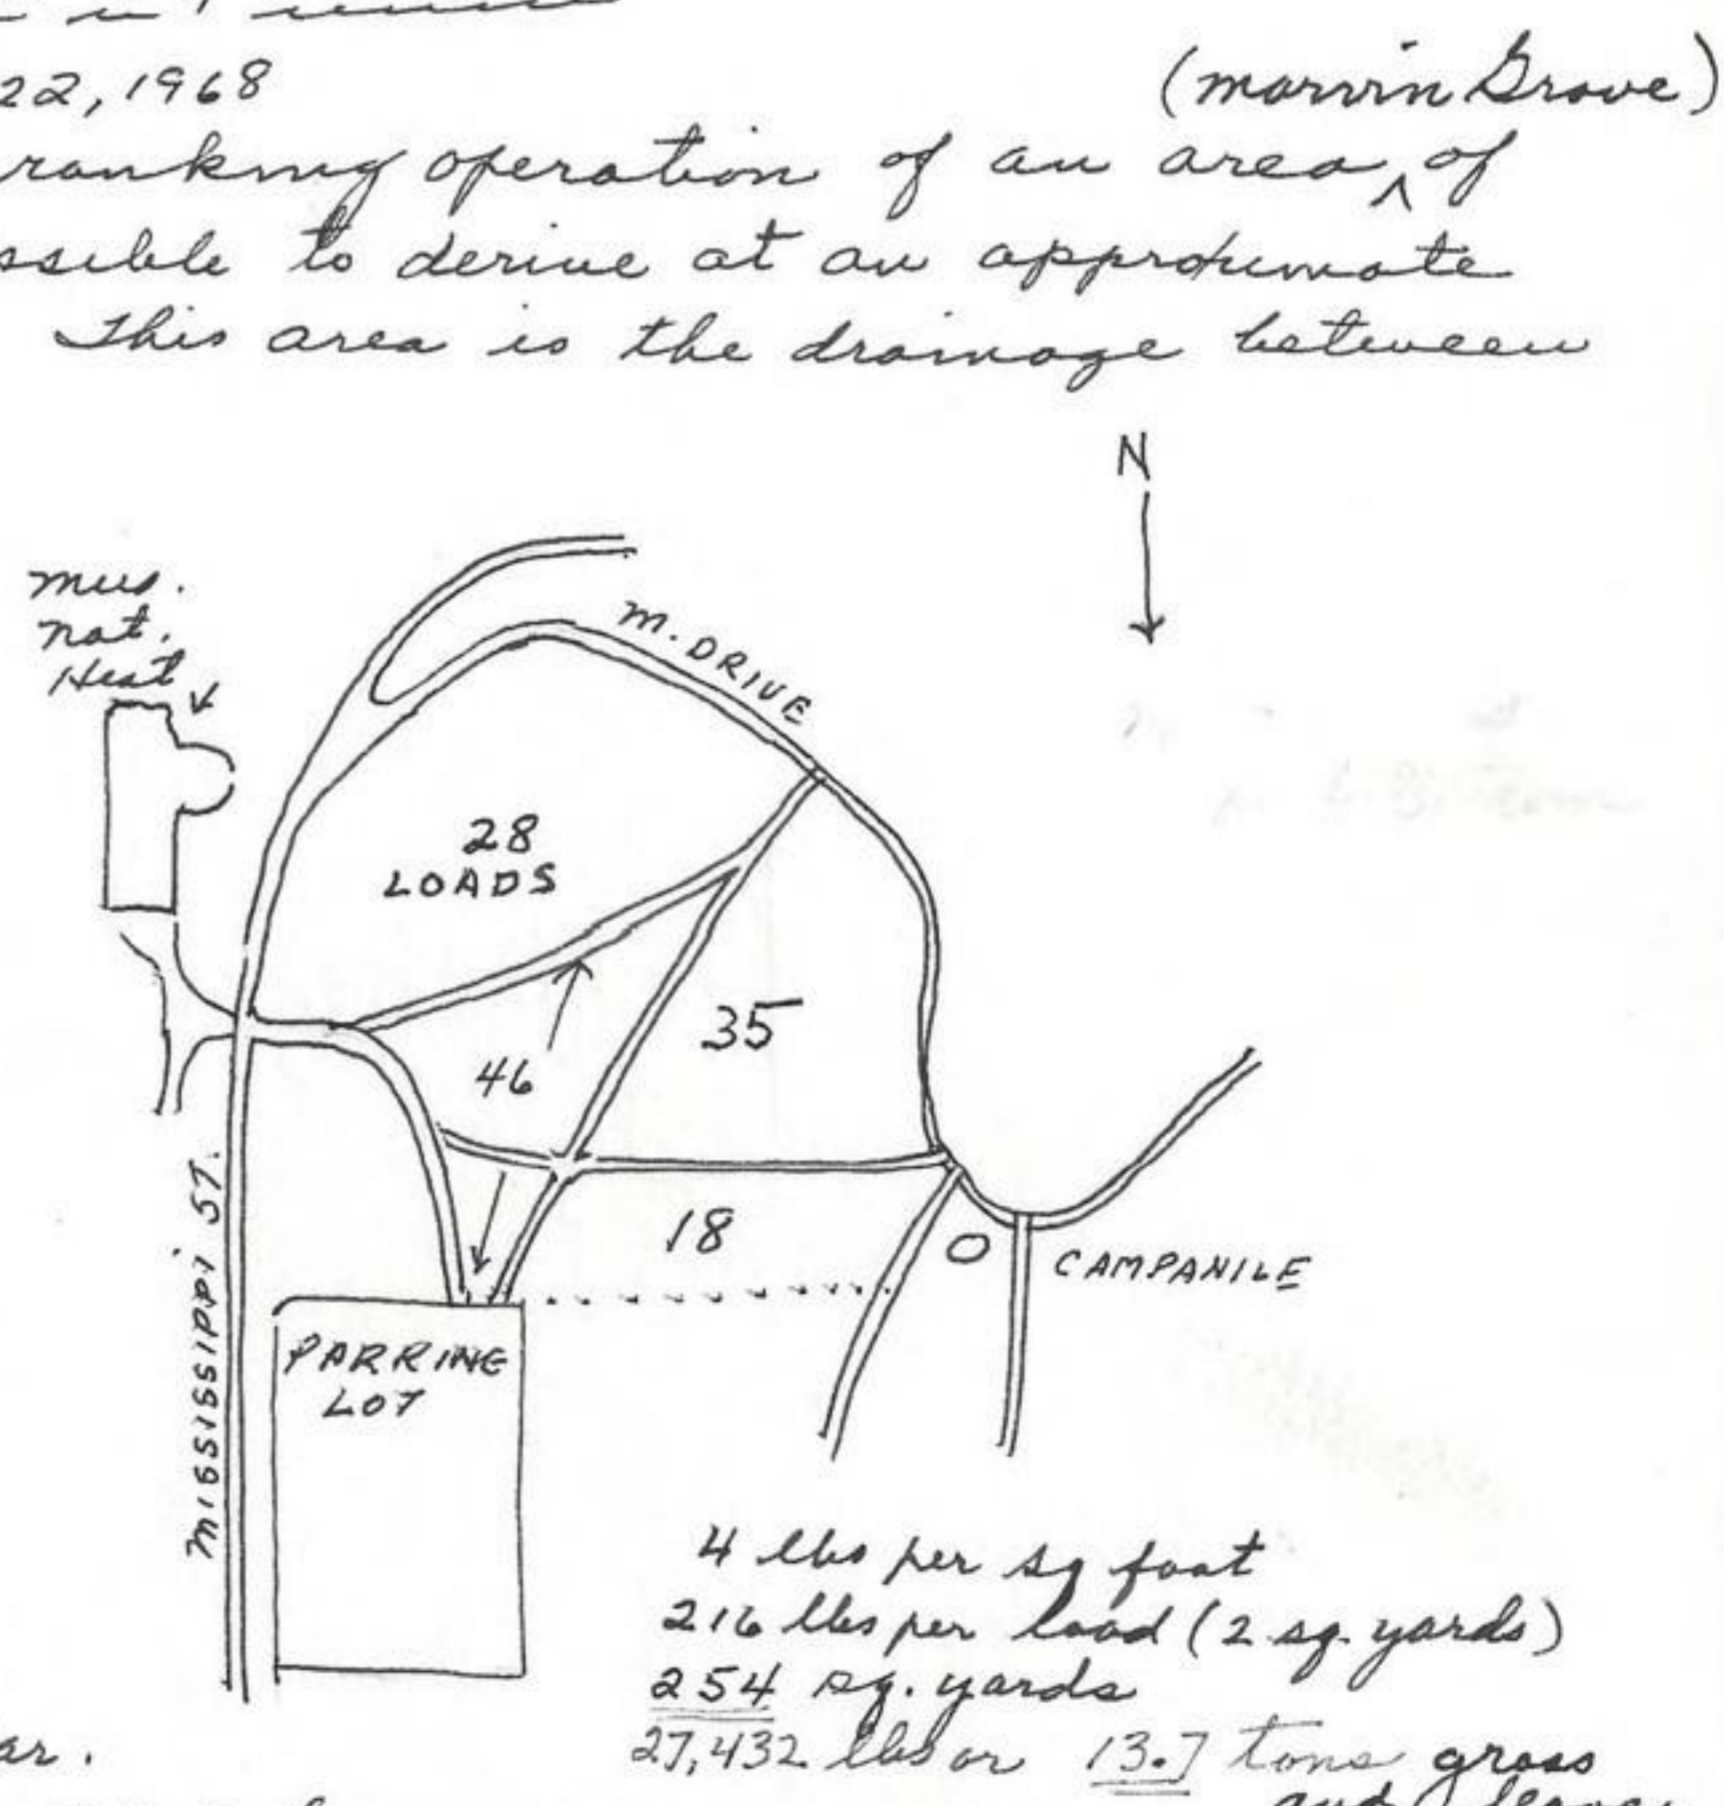 22, 1968
(Marvin Grove)
ranking operation of an area ^ of
ssible to derive at an approximate
This area is the drainage between
N
Mus.
Nat.
Hist
M. DRIVE
28
LOADS
35
46
18
MISSISSIPPI ST.
CAMPANILE
PARKING
LOT
4 lbs per sq foot
216 lbs per load (2 sq. yards)
254 sq. yards
27,432 lbs or 13.7 tons gross
ar.
and leaves